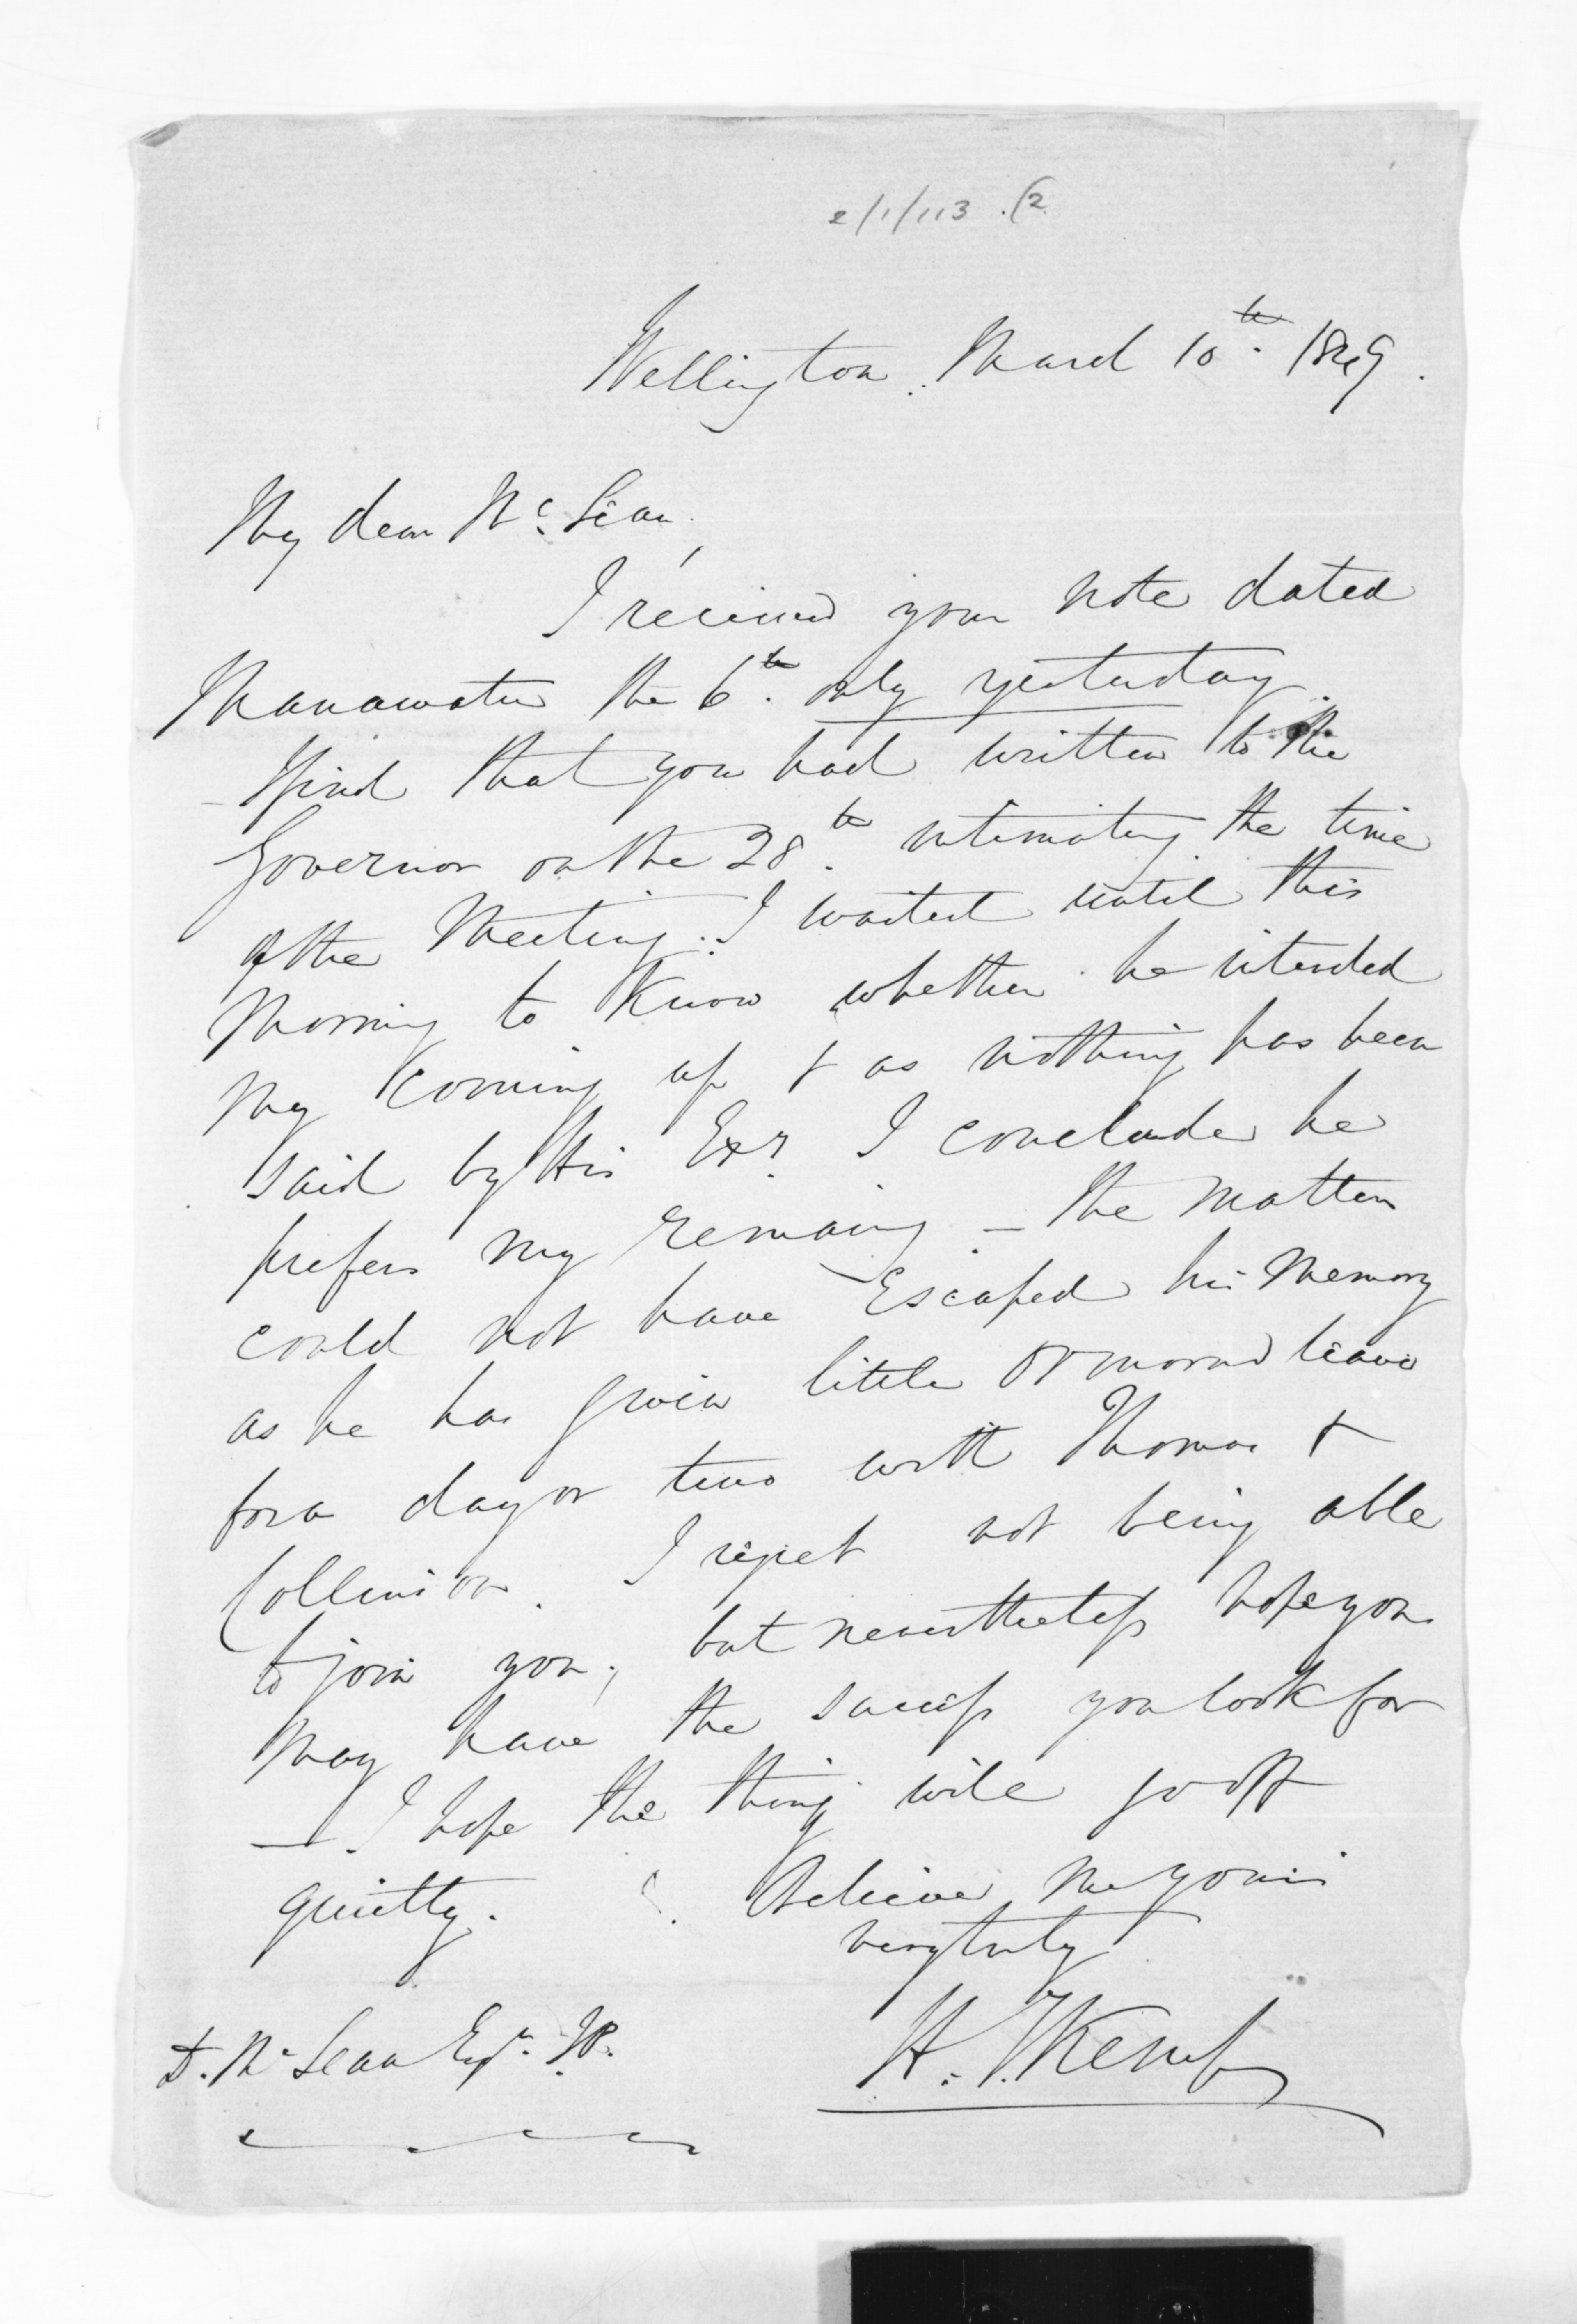 2/1/113 . (2
Wellington. March 10th. 1849.
My dear McLean,
I received your note dated
Manawatu the 6th. only yesterday.
- I find that you had written to the
Governor on the 28th. intimating the time
of the Meeting. I waited until this
Morning to Know whether he intended
My Coming up & as nothing has been
said by His Exy. I conclude he
prefers my remaing - The matter
could not have Escaped his Memory
as he has given little leave
for a day or two with Thomas &
Collinson. I regret not being able
to join you, but nevertheless hope you
May have the success you look for
— I hope the thing will go off
quietly. Believe Me yours
very truly
H. T. Kemp
D. McLean Esqr. J.P.